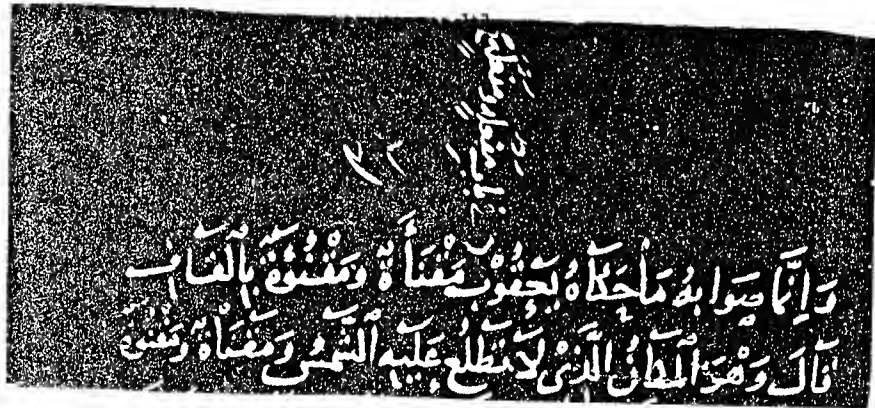 وَإِنَّمَا صَوَابُهُ مَا حَكَاهُ يَعْقُوبُ مَقْنَأَةٌ وَمَقْنُؤَةٌ بِالْقَافِ
قَالَ وَهْوَ الْمَكَانُ الَّذِي لَا تَطْلُعُ عَلَيْهِ الشَّمْسُ وَمَقْنَاةٌ وَمَقْنُوَةٌ